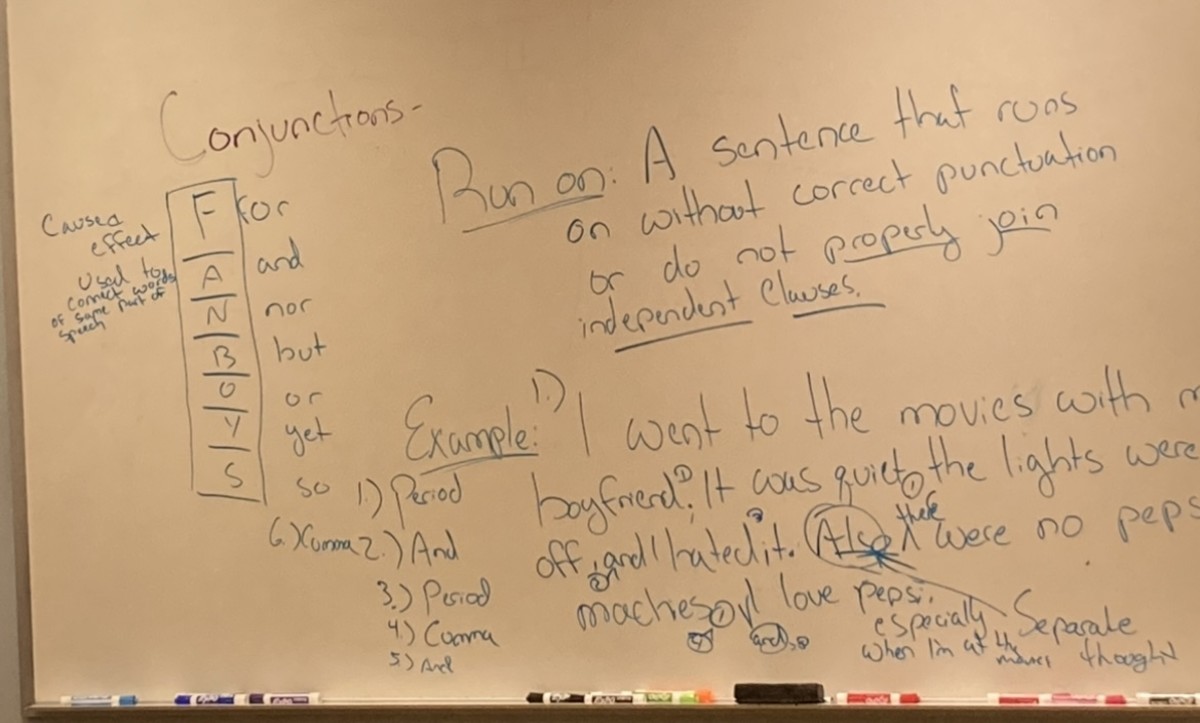 Conjunctions-
Caused
effect
used to
connect words
of same part of
speech
F for
A and
N nor
B but
O or
Y yet
S so
Run on: A sentence that runs
on without correct punctuation
or do not properly join
independent Clauses.
Example: 1.) I went to the movies with
boyfriend. It was quiet, the lights were
off, and I hated it. Also there were no peps
machies, I love pepsi.
and,
especially
when I'm at the
movies
Separate
thought
1.) Period
2.) And
3.) Period
4.) Comma
5.) And
6.) Comma